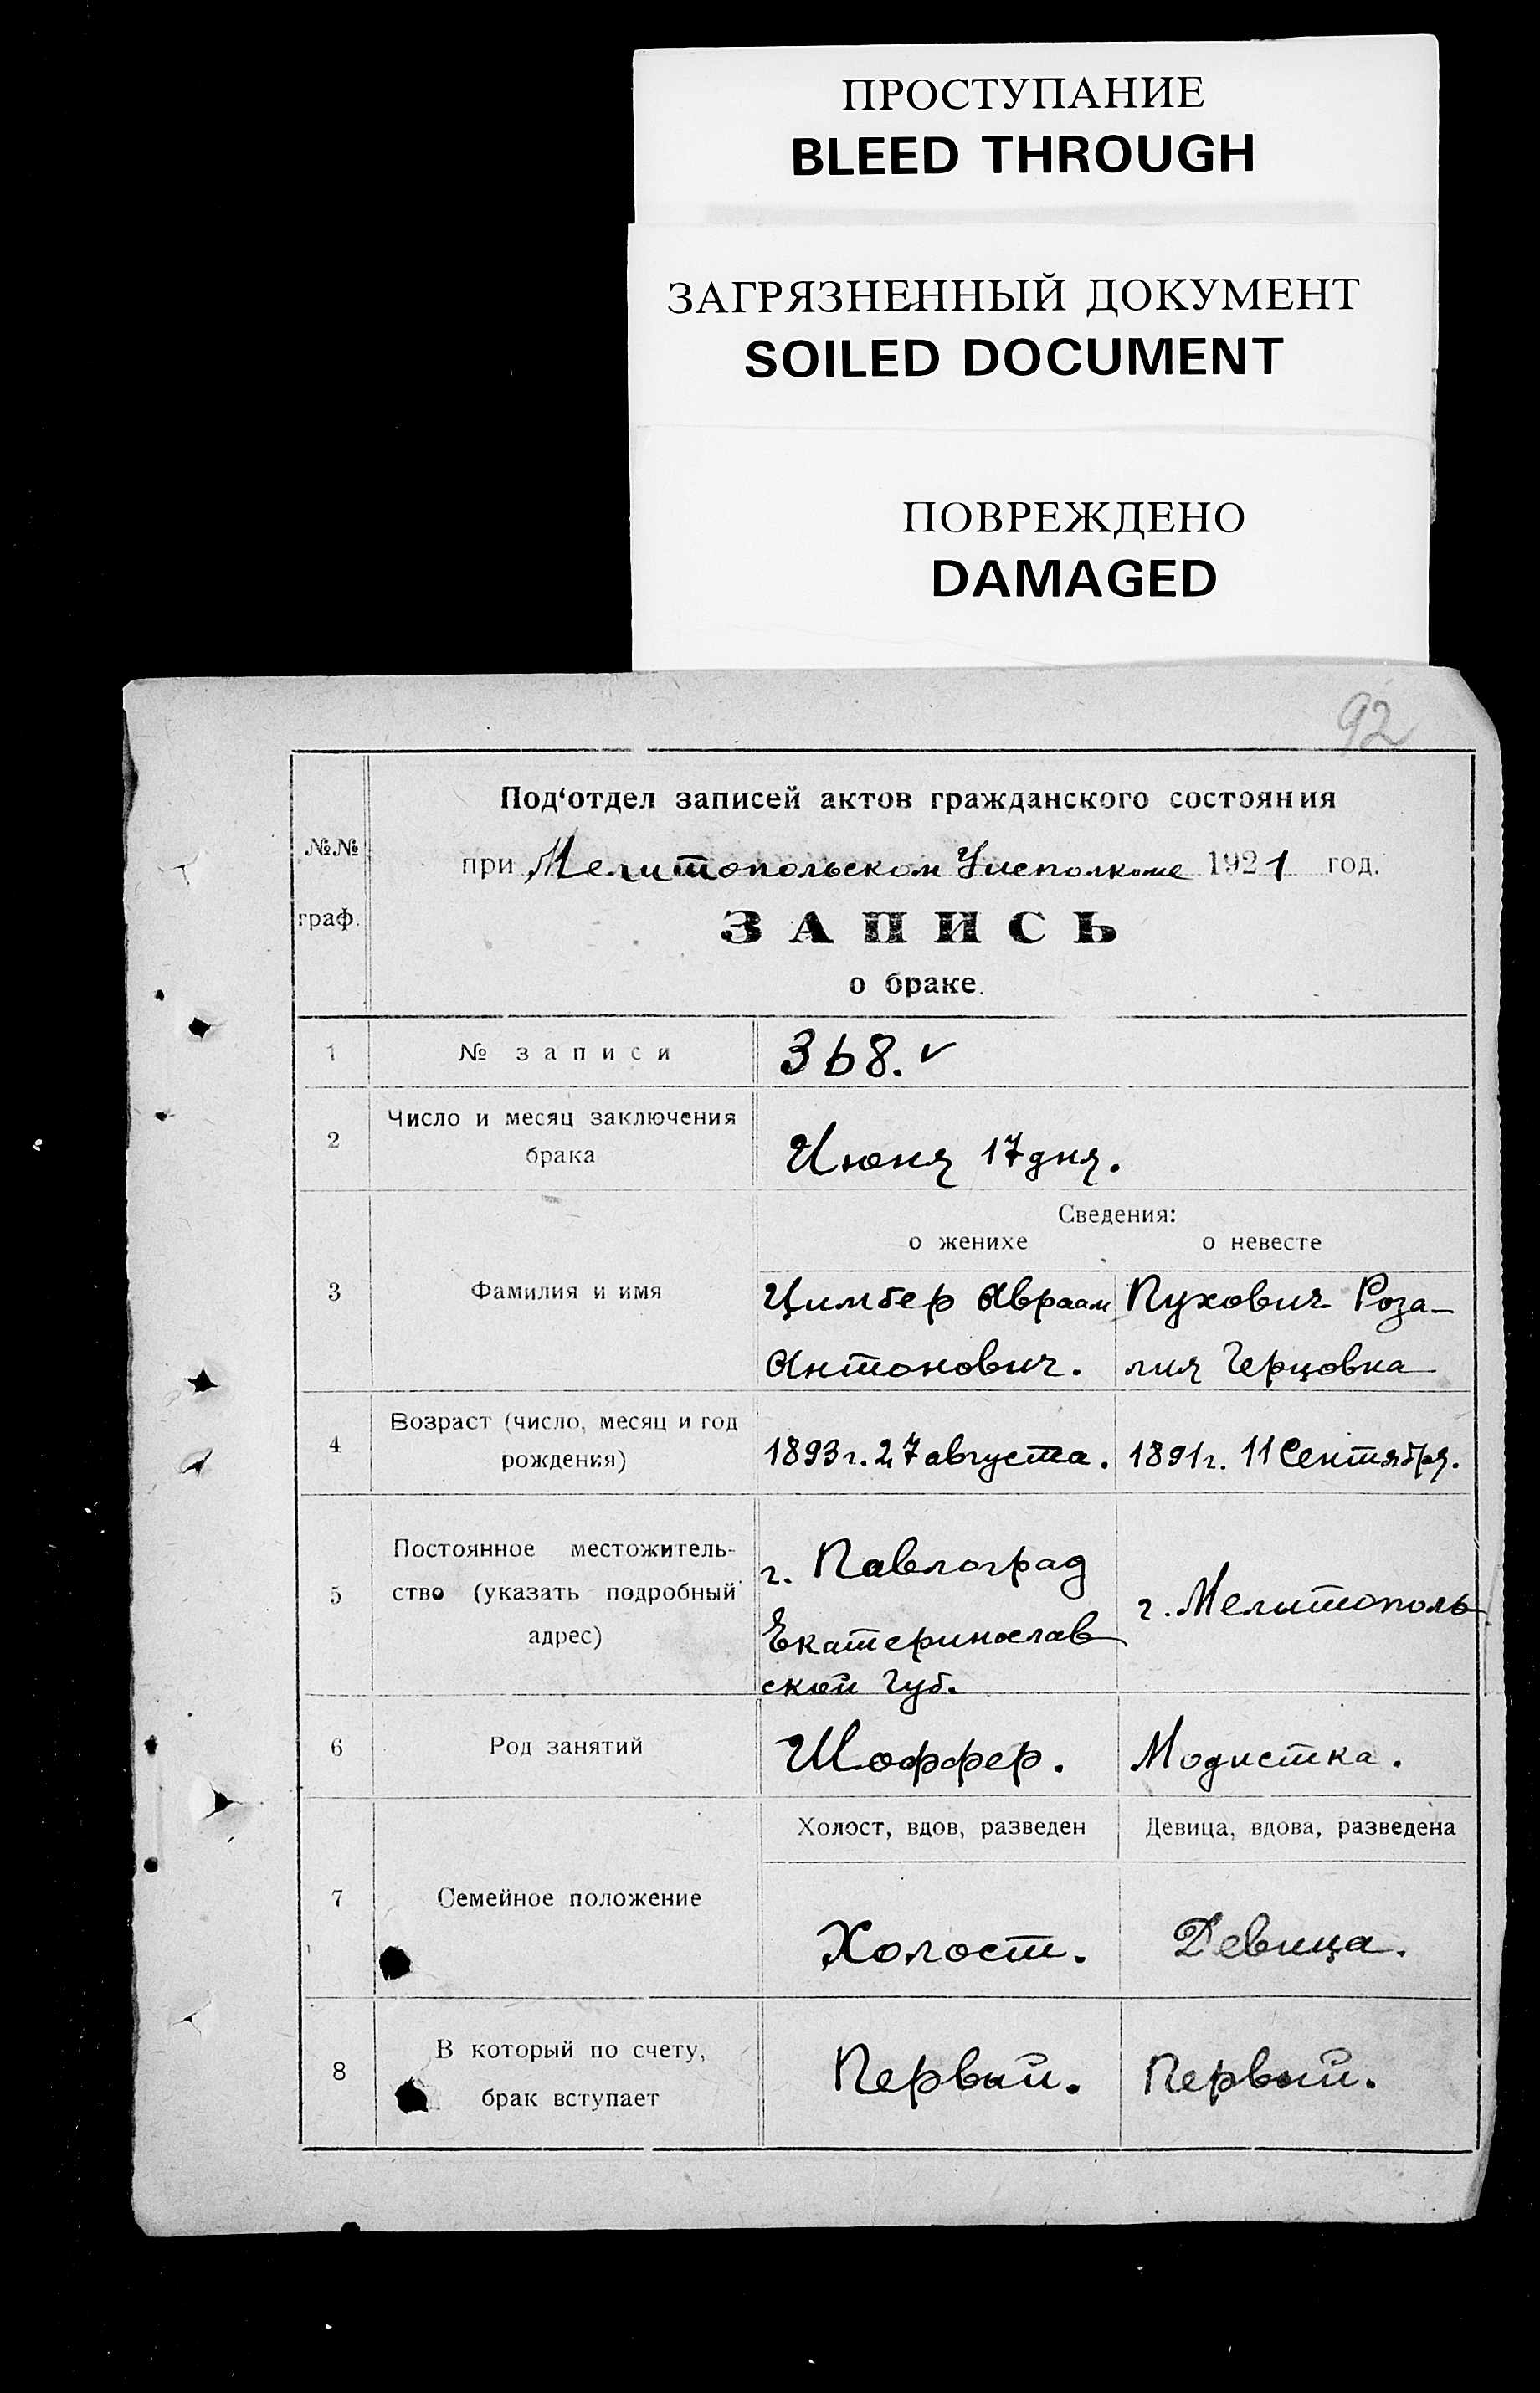 ПРОСТУПАНИЕ
BLEED THROUGH
ЗАГРЯЗНЕННЫЙ ДОКУМЕНТ
SOILED DOCUMENT
ПОВРЕЖДЕНО
DAMAGED
92
№№
граф.
Под‘отдел записей актов гражданского состояния
при Мелитопольском Уисполкоме 1921 год.
ЗАПИСЬ
о браке.
1 № записи 368. ✓
2 Число и месяц заключения
брака
Июня 17 дня.
Сведения:
о женихе о невесте
3 Фамилия и имя
Цимбер Авраам
Антонович.
Пухович Роза-
лия Герцовна
4 Возраст (число, месяц и год
рождения)
1893 г. 27 августа.
1891 г. 11 Сентября.
5 Постоянное местожитель-
ство (указать подробный
адрес)
г. Павлоград
Екатеринослав
ской Губ.
г. Мелитополь
6 Род занятий
Шоффер.
Модистка.
7 Семейное положение
Холост, вдов, разведен
Девица, вдова, разведена
Холост.
Девица.
8 В который по счету,
брак вступает
Первый.
Первый.